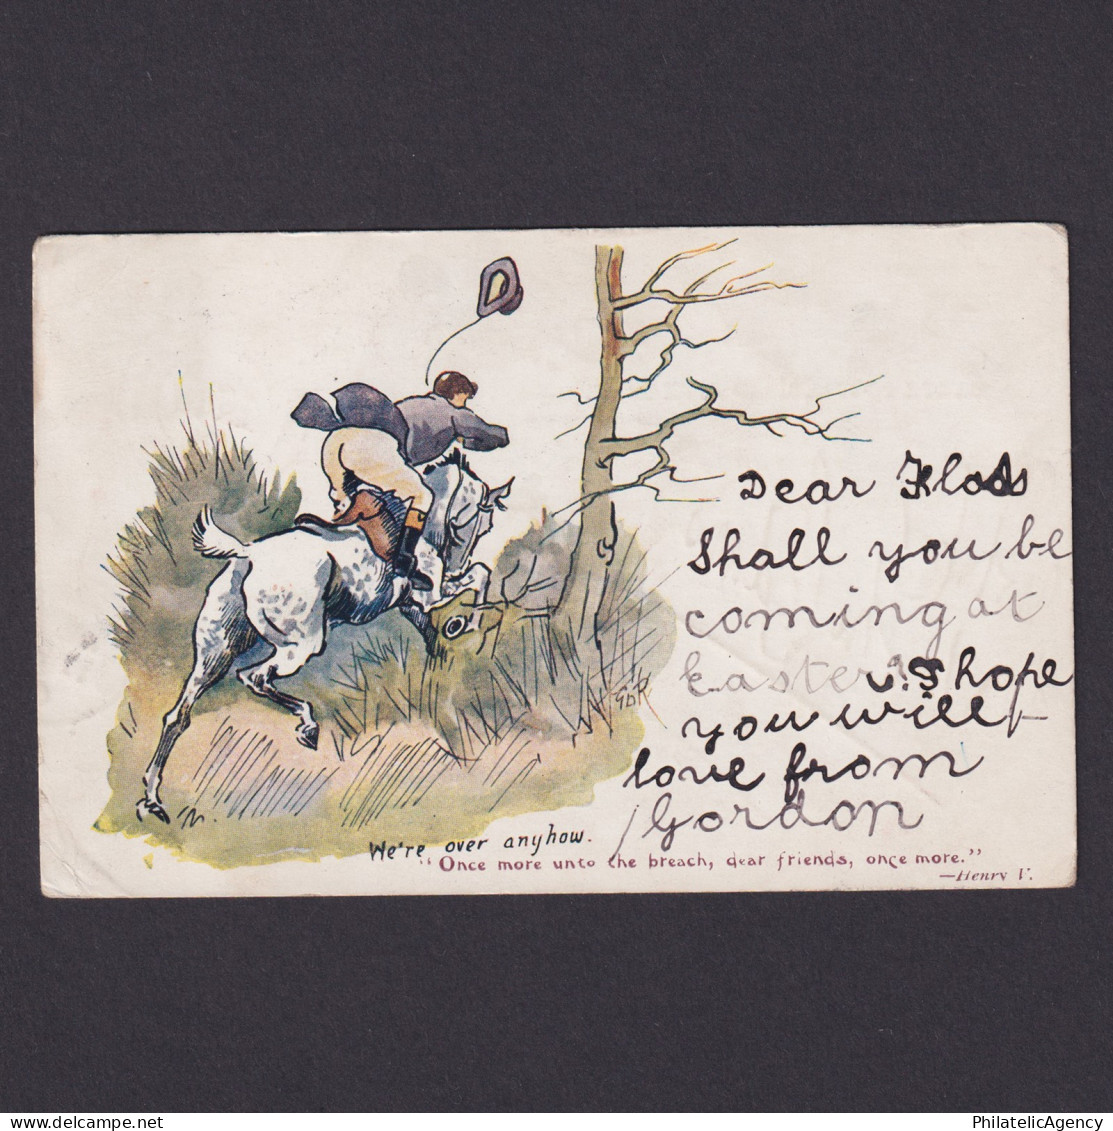 Dear Floss
Shall you be
coming at
Easter? I hope
you will
love from
Gordon
GDR
We're over anyhow.
"Once more unto the breach, dear friends, once more."
—Henry V.
PhilatelicAgency